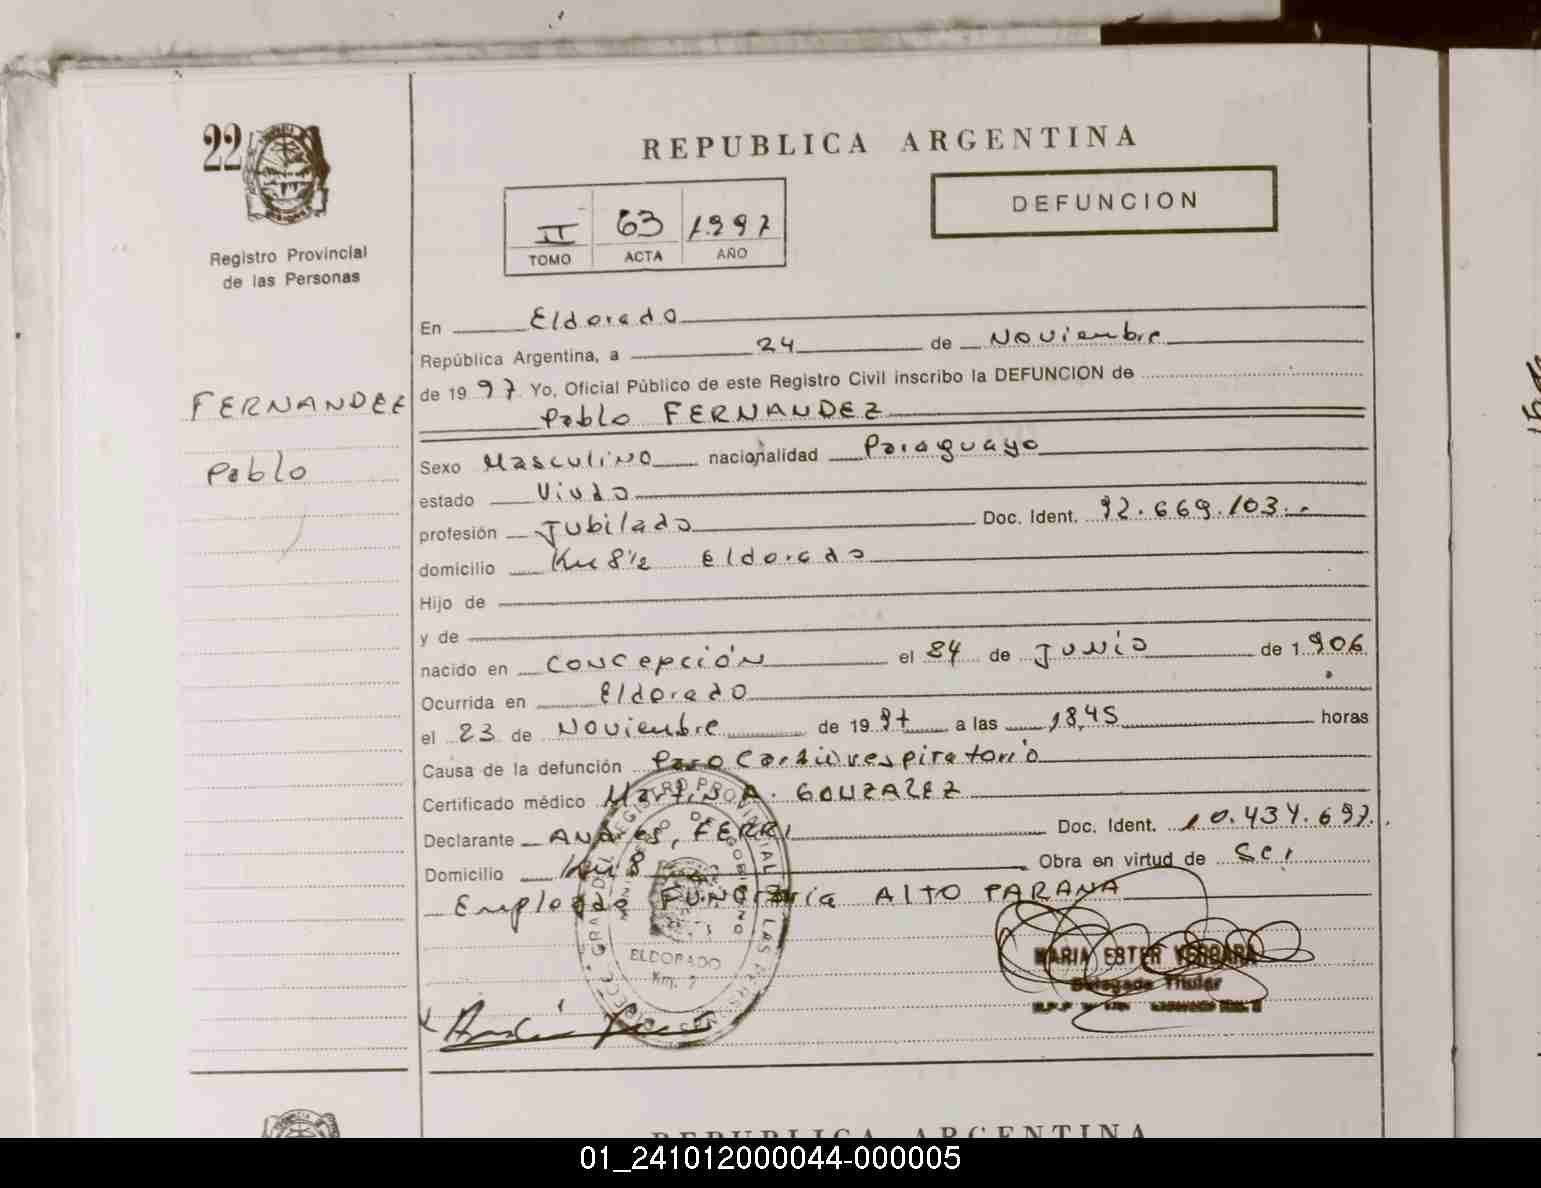 22
Registro Provincial
de las Personas
REPUBLICA ARGENTINA
DEFUNCION
II 63 1997
TOMO ACTA AÑO
En Eldorado
República Argentina, a 24 de Noviembre
de 1997 Yo, Oficial Público de este Registro Civil inscribo la DEFUNCION de
FERNANDEZ
Pablo FERNANDEZ
Pablo
Sexo Masculino nacionalidad Paraguayo
estado Viudo
profesión Jubilado Doc. Ident. 92.669.103.-
domicilio Km 8 1/2 Eldorado
Hijo de
y de
nacido en Concepción el de Junio de 1.906
Ocurrida en Eldorado
el 23 de Noviembre de 1997 a las 18,45 horas
Causa de la defunción Paro Cardiorespiratorio
Certificado médico A. GONZALEZ
Declarante Andres, FERRI Doc. Ident. 10.434.697.
Domicilio Km 8 Obra en virtud de Ser
Empleado FUNeraria ALTO PARANA
REGISTRO PROVINCIAL DE LAS PERSONAS
MINISTERIO DE GOBIERNO
ELDORADO
Km. 7
MARIA ESTER VERGARA
Delegada Titular
REPUBLICA ARGENTINA
01_241012000044-000005